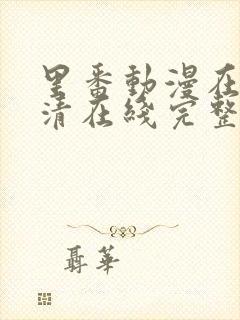 里番動漫在
清在綫完整
聶華